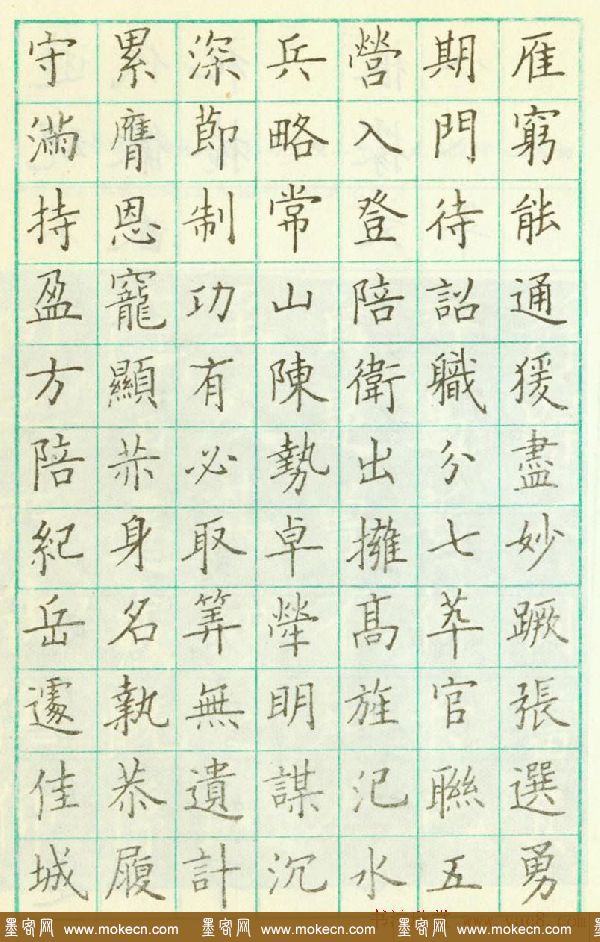 雁窮能通猨盡妙蹶張選勇
期門待詔職分七萃官聯五
營入登陪衛出擁高旌汜水
兵略常山陳勢卓犖明謀沉
深節制功有必取筭無遺計
累膺恩寵顯赤身名執恭履
守滿持盈方陪紀岳遽佳城
墨客网 www.mokecn.com 墨客网 www.mokecn.com 墨客网 www.mokecn.com